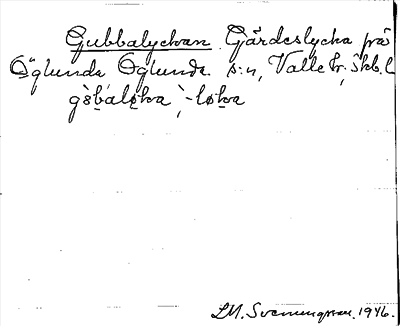 Gubbalyckan Gärdeslycka på
Öglunda Öglunda s:n, Valle hr; Skb. l
gòb̀áløka, -løka
LM. Svenungsson. 1946.